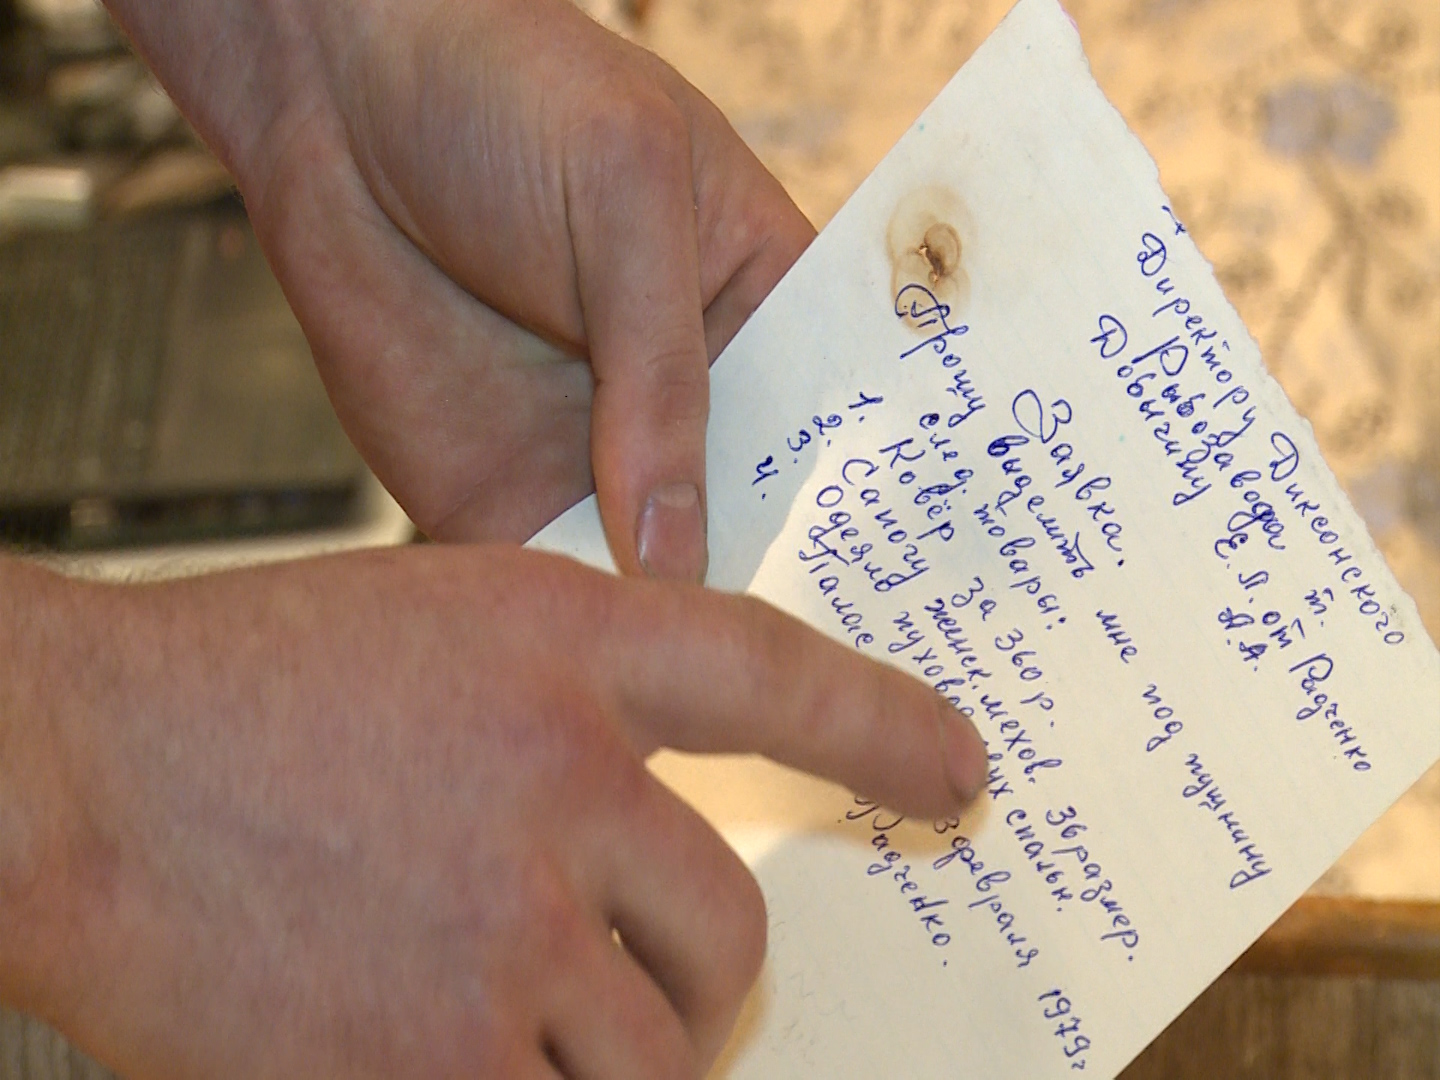 Директору Диксонского
Рыбозавода т.
Добычину Е.П. от Радченко
А.А.
Заявка.
Прошу выделить мне под пушнину
след. товары:
1. Ковёр за 360 р.
2. Сапогу женск. мехов. 36 размер.
3. Одеяло пуховое двух спальн.
4. Палас
3 февраля 1979г
Радченко.